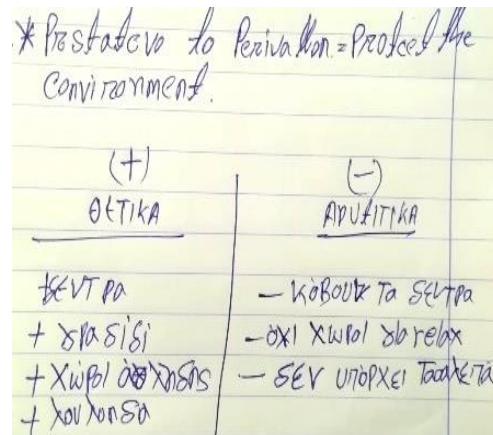 * Prostatevo to Perivallon = Protect the
environment.
(+) (-)
ΘΕΤΙΚΑ ΑΡΝΗΤΙΚΑ
+ δεντρα - κόβουν τα δεντρα
+ γρασίδι - όχι χώροι για relax
+ χώροι άθλησης - δεν υπάρχει
+ λουλουδα